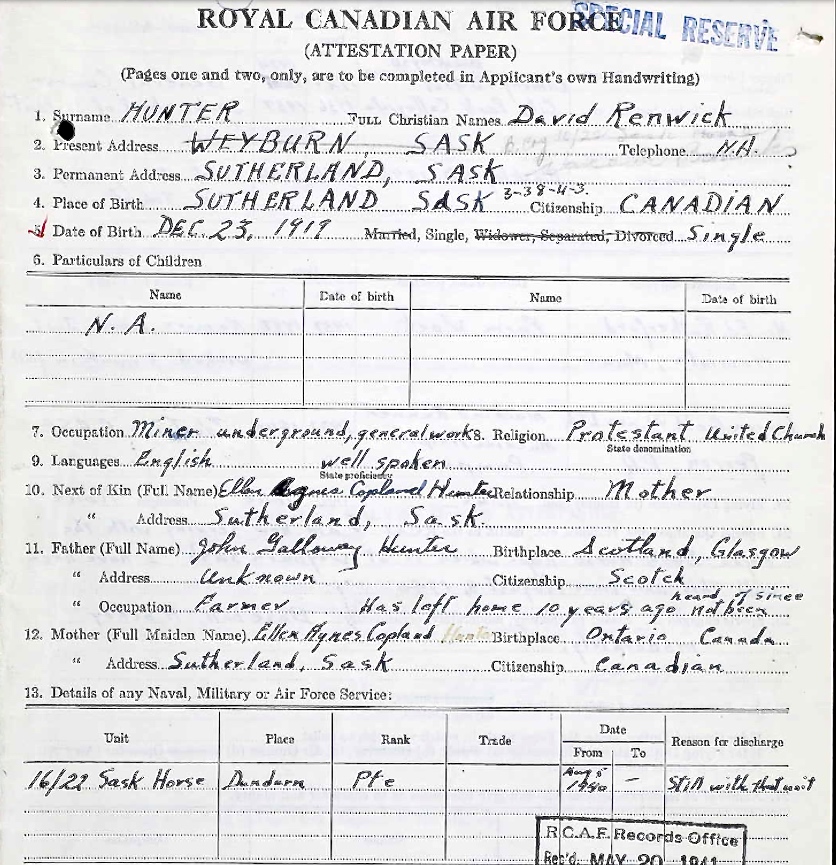 ROYAL CANADIAN AIR FORCE
SPECIAL RESERVE
(ATTESTATION PAPER)
(Pages one and two, only, are to be completed in Applicant's own Handwriting)
1. Surname HUNTER Full Christian Names David Renwick
2. Present Address WEYBURN, SASK Telephone N.A.
3. Permanent Address SUTHERLAND, SASK
3-38-4-3
4. Place of Birth SUTHERLAND SASK Citizenship CANADIAN
5. Date of Birth DEC 23, 1919 Married, Single, Widower, Separated, Divorced Single
6. Particulars of Children
Name Date of birth Name Date of birth
N. A.
7. Occupation Miner underground, general work 8. Religion Protestant United Church
State denomination
9. Languages English well spoken
State proficiency
10. Next of Kin (Full Name) Ellen Agnes Copland Hunter Relationship Mother
" Address Sutherland, Sask.
11. Father (Full Name) John Galloway Hunter Birthplace Scotland, Glasgow
" Address Unknown Citizenship Scotch
heard of since
" Occupation Farmer Has left home 10 years ago not been
12. Mother (Full Maiden Name) Ellen Agnes Copland Birthplace Ontario Canada
" Address Sutherland, Sask Citizenship Canadian
13. Details of any Naval, Military or Air Force Service:
Unit Place Rank Trade Date Reason for discharge
From To
16/22 Sask Horse Dundurn Pte Aug 5 1940 – Still with that unit
R.C.A.F. Records Office
Rec'd. MAY 20 1941